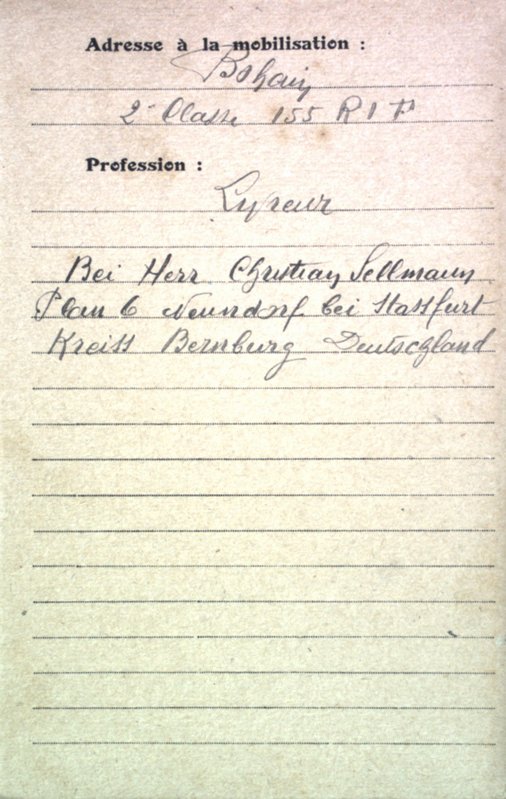 Adresse à la mobilisation :
Bohain
2e Classe 155 R I T
Profession :
Bei Herr Christian Sellmann
Plan 6 Neundorf bei Stassfurt
Kreiss Bernburg Deutschland